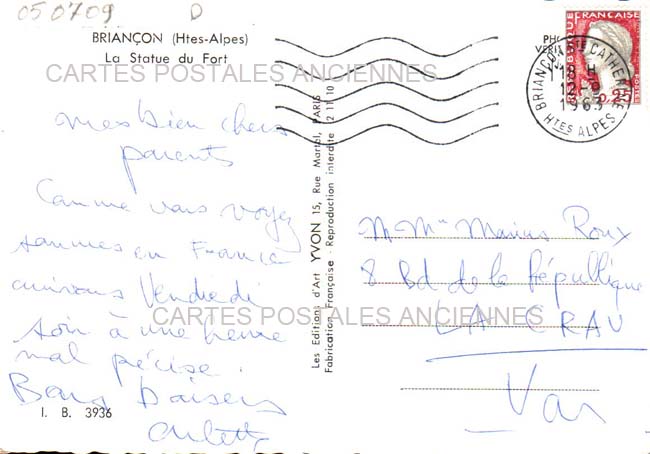 050709 D
BRIANÇON (Htes-Alpes)
La Statue du Fort
CARTES POSTALES ANCIENNES
mes bien chers
parents
Comme vous voyez
sommes en France
arrivons Vendredi
soir à une heure
mal précise.
Bons Baisers
Arlette
I. B. 3936
Les Editions d'Art YVON 15, Rue Martel, PARIS
Fabrication Française - Reproduction interdite 2 11 10
RÉPUBLIQUE FRANÇAISE
POSTES
0,25
BRIANÇON STE CATHERINE
1963
HTES ALPES
M Mme Marius Roux
8 Bd de la République
LA CRAU
Var
CARTES POSTALES ANCIENNES